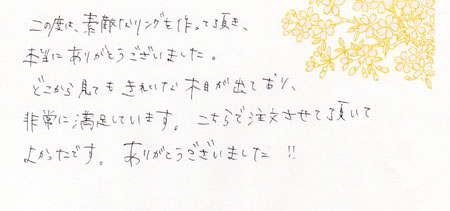 この度は、素敵なリングを作って頂き、
本当にありがとうございました。
どこから見てもきれいな木目が出ており、
非常に満足しています。こちらで注文させて頂いて
よかったです。ありがとうございました!!